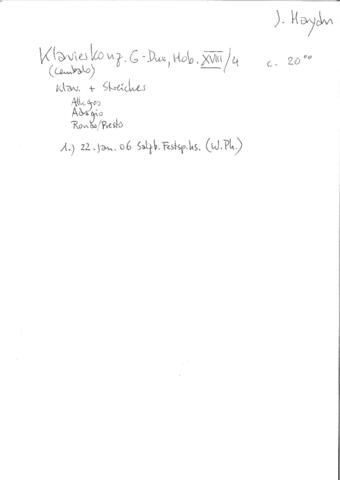 J. Haydn
Klavierkonz. G-Dur, Hob. XVIII/4 c. 20°°
(Cembalo)
Klav. + Streicher
Allegro
Adagio
Rondo/Presto
1.) 22. Jan. 06 Salzb. Festsp.hs. (W.Ph.)